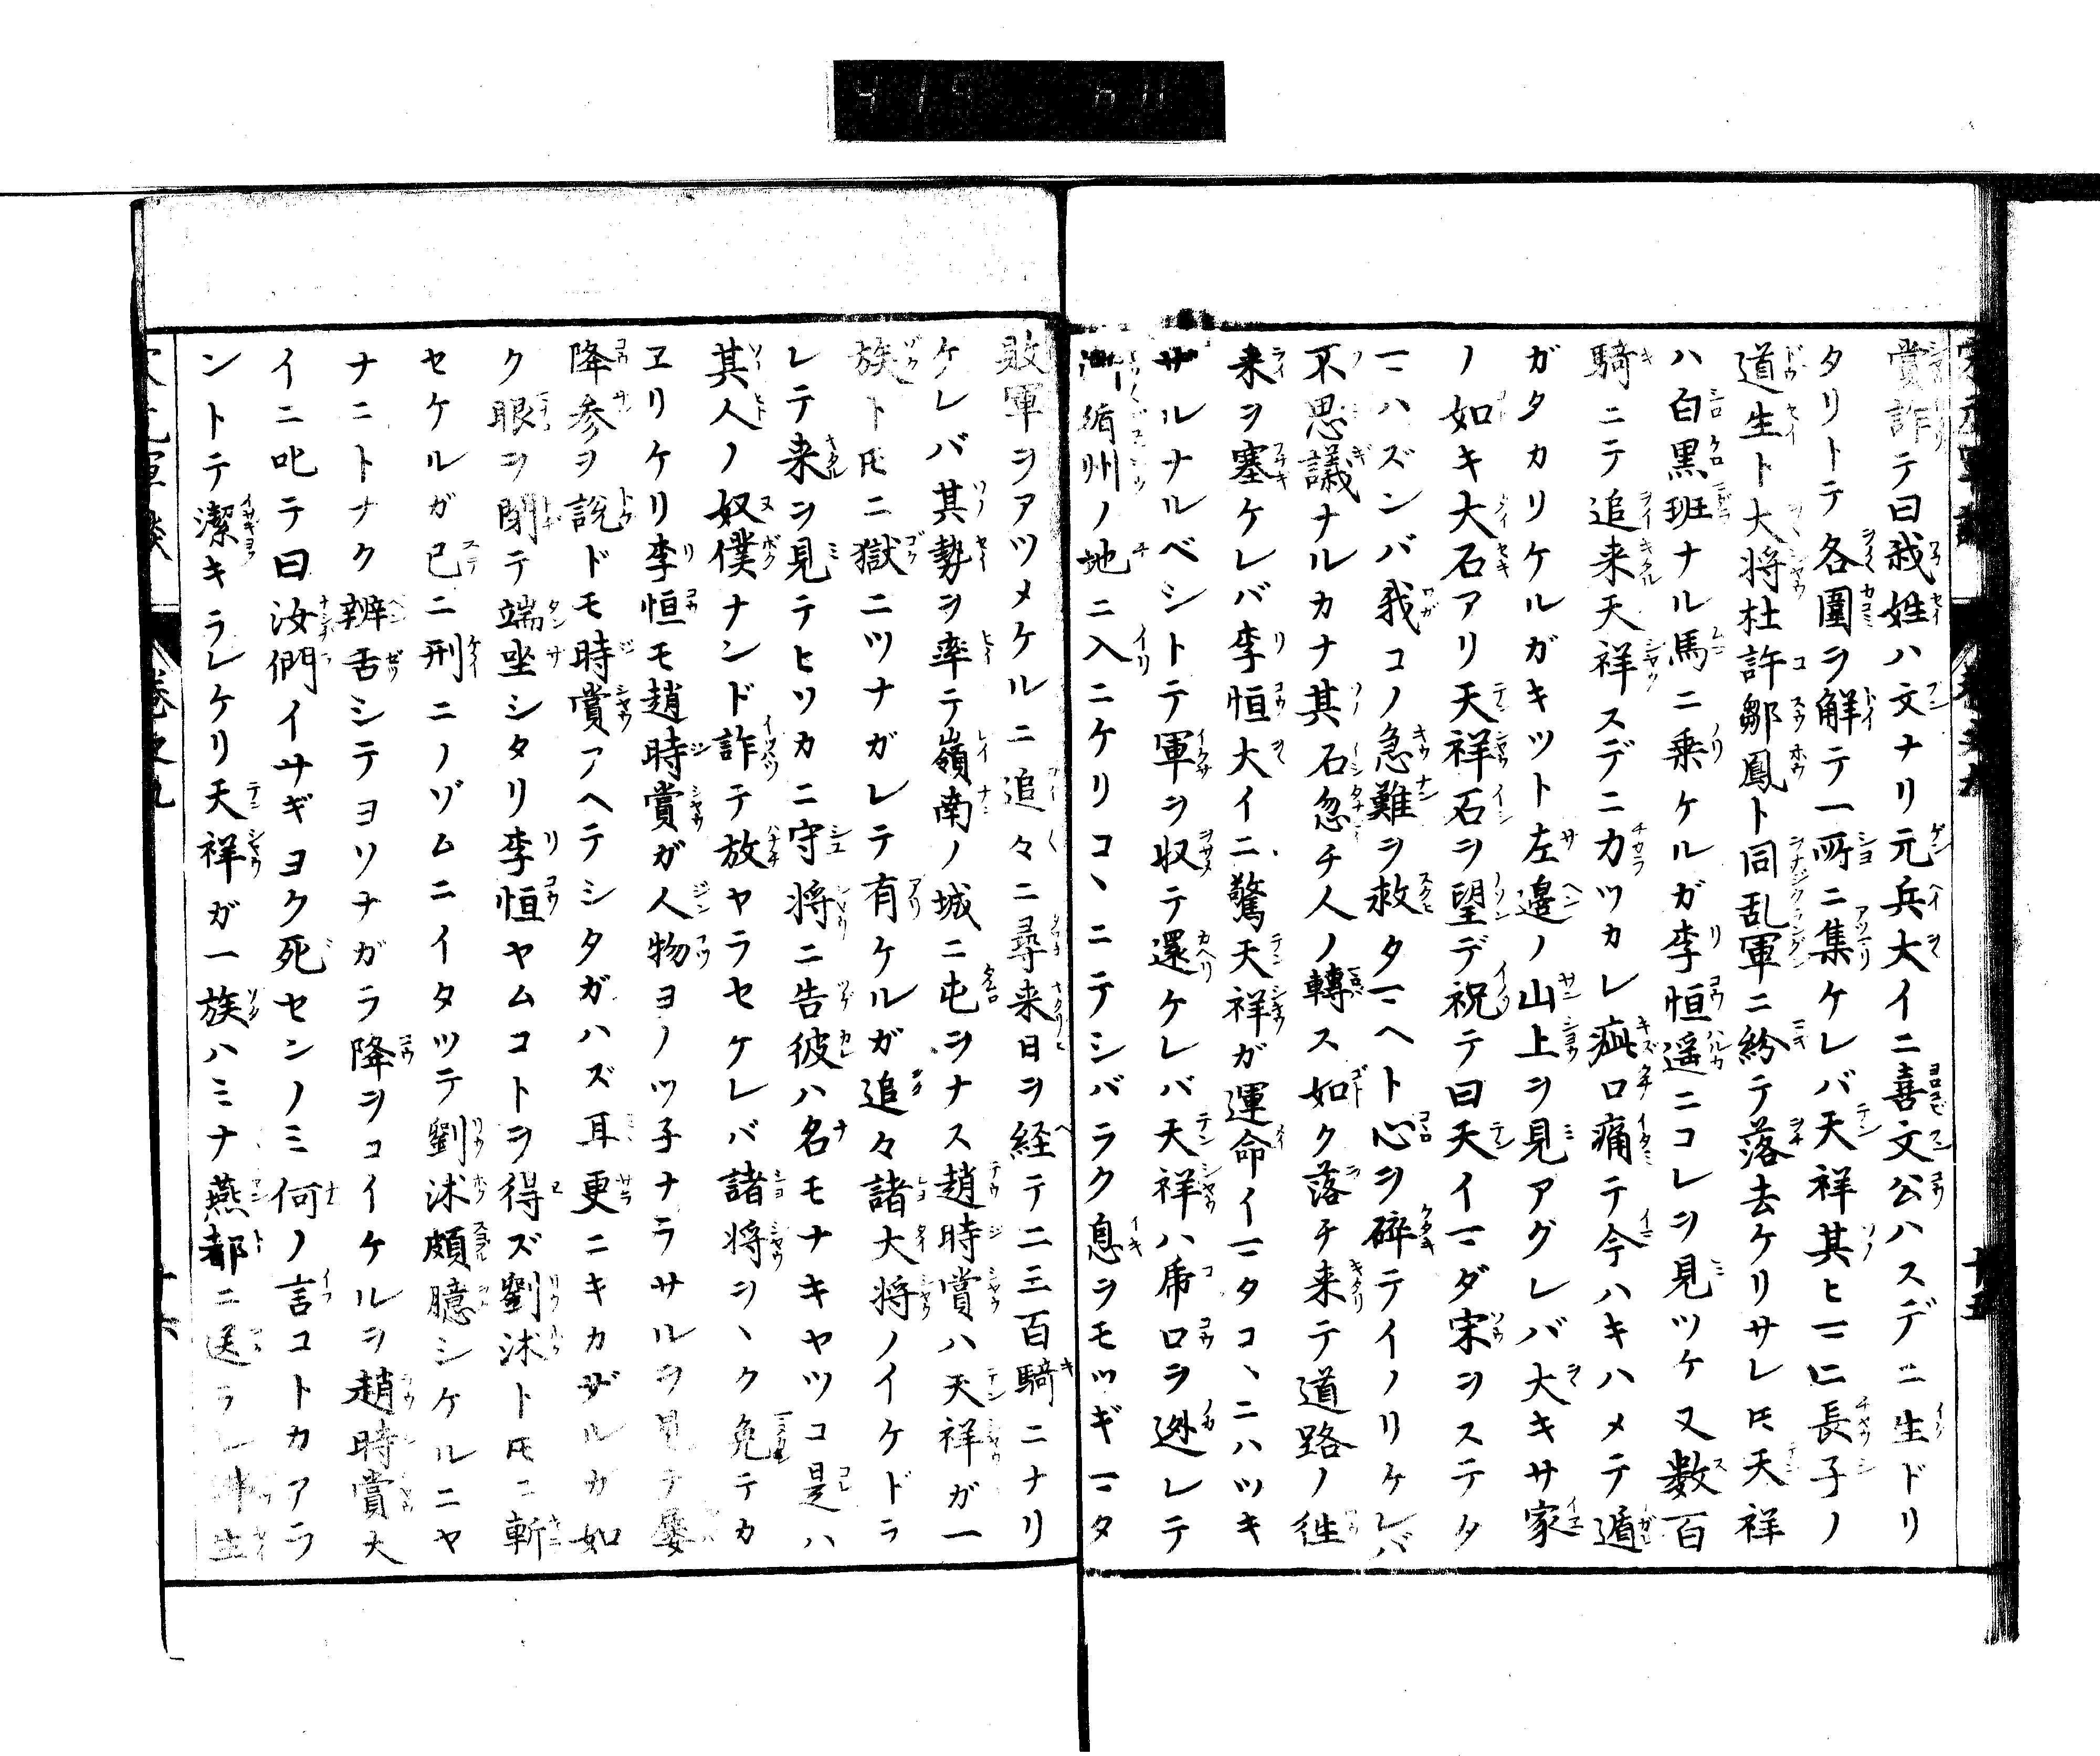 賞詐テ曰我姓ハ文ナリ元兵大イニ喜文公ハスデニ生ドリ
タリトテ各圍ヲ解テ一所ニ集ケレバ天祥其ヒマニ長子ノ
道生ト大将杜許鄒鳳ト同乱軍ニ紛テ落去ケリサレ𪜈天祥
ハ白黒班ナル馬ニ乗ケルガ李恒遥ニコレヲ見ツケ又数百
騎ニテ追来天祥スデニ力ツカレ疵口痛テ今ハキハメテ遁
ガタカリケルガキツト左邉ノ山上ヲ見アグレバ大キサ家
ノ如キ大石アリ天祥石ヲ望デ祝テ曰天イマダ宋ヲステタ
マハズンバ我コノ急難ヲ救タマヘト心ヲ碎テイノリケレバ
不思議ナルカナ其石忽チ人ノ轉ス如ク落チ来テ道路ノ徃
来ヲ塞ケレバ李恒大イニ驚天祥ガ運命イマタコヽニハツキ
ザルナルベシトテ軍ヲ収テ還ケレバ天祥ハ虎口ヲ逃レテ
循州ノ地ニ入ニケリコヽニテシバラク息ヲモツギマタ
敗軍ヲアツメケルニ追々ニ尋来日ヲ経テ二三百騎ニナリ
ケレバ其勢ヲ率テ嶺南ノ城ニ屯ヲナス趙時賞ハ天祥ガ一
族ト𪜈ニ獄ニツナガレテ有ケルガ追々諸大将ノイケドラ
レテ来ヲ見テヒツカニ守将ニ告彼ハ名モナキヤツコ是ハ
其人ノ奴僕ナンド詐テ放ヤラセケレバ諸将ヲヽク免テカ
ヱリケリ李恒モ趙時賞ガ人物ヨノツ子ナラサルヲ見テ屡
降参ヲ説ドモ時賞アヘテシタガハズ耳更ニキカザルカ如
ク眼ヲ閉テ端坐シタリ李恒ヤムコトヲ得ズ劉洙ト𪜈ニ斬
セケルガ已ニ刑ニノゾムニイタツテ劉洙頗臆シケルニヤ
ナニトナク辨舌シテヨソナガラ降ヲコイケルヲ趙時賞大
イニ叱テ曰汝們イサギヨク死センノミ何ノ言コトカアラ
ントテ潔キラレケリ天祥ガ一族ハミナ燕都ニ送ラレ